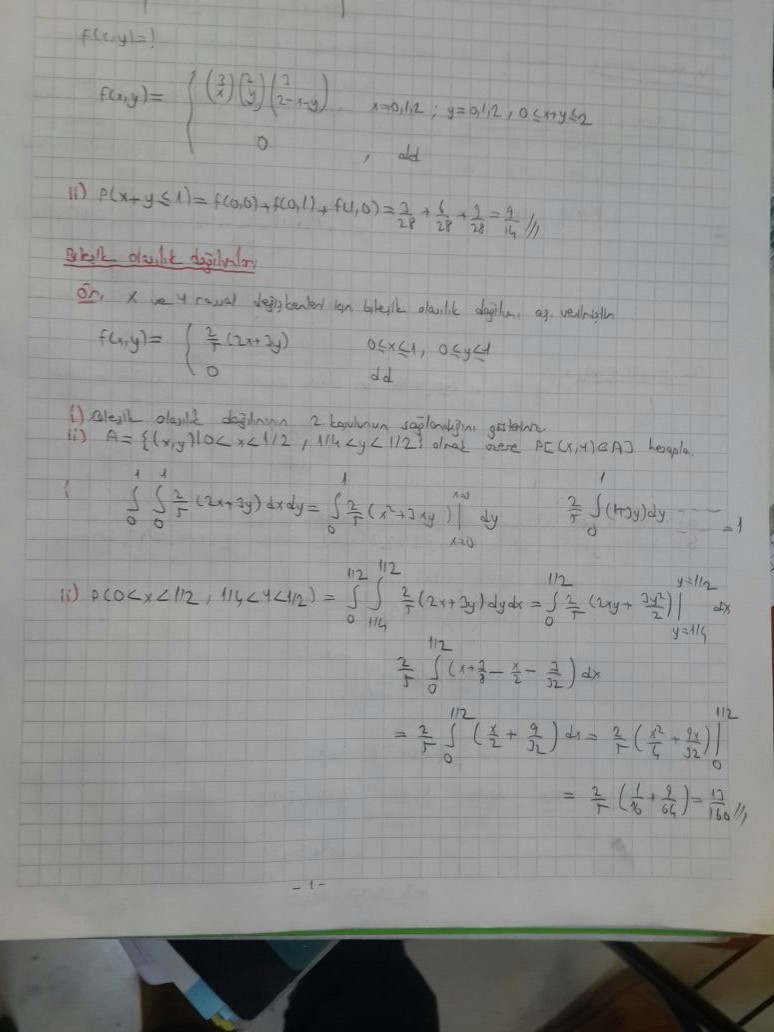 f(x,y)=?
f(x,y)= { (3 x) (2 y) (3 2-x-y) x=0,1,2 ; y=0,1,2 , 0≤x+y≤2
0 , dd
ii) P(x+y≤1)=f(0,0)+f(0,1)+f(1,0)=3/28+6/28+9/28=9/14//
Bileşik olasılık dağılımları
Ör, X ve Y rassal değişkenleri için bileşik olasılık dağılımı aş. verilmiştir
f(x,y)= { 2/5 (2x+3y) 0≤x≤1, 0≤y≤1
0 dd
i) Bileşik olasılık dağılımının 2 koşulunun sağlandığını gösteriniz
ii) A={(x,y)|0<x<1/2, 1/4<y<1/2} olmak üzere P[(X,Y)∈A] hesapla.
i ∫₀¹ ∫₀¹ 2/5 (2x+3y)dxdy= ∫₀¹ 2/5 (x²+3xy)| x=0 dy 2/5 ∫₀¹ (1+3y)dy =1
ii) P(0<x<1/2, 1/4<y<1/2) = ∫₀^1/2 ∫_1/4^1/2 2/5 (2x+3y)dydx = ∫₀^1/2 2/5 (2xy+3y²/2)| y=1/2 y=1/4 dx
2/5 ∫₀^1/2 (x+3/8-x/2-3/32)dx
= 2/5 ∫₀^1/2 (x/2+9/32)dx = 2/5 (x²/4+9x/32)|₀^1/2
= 2/5 (1/16+9/64)=13/160//
-1-